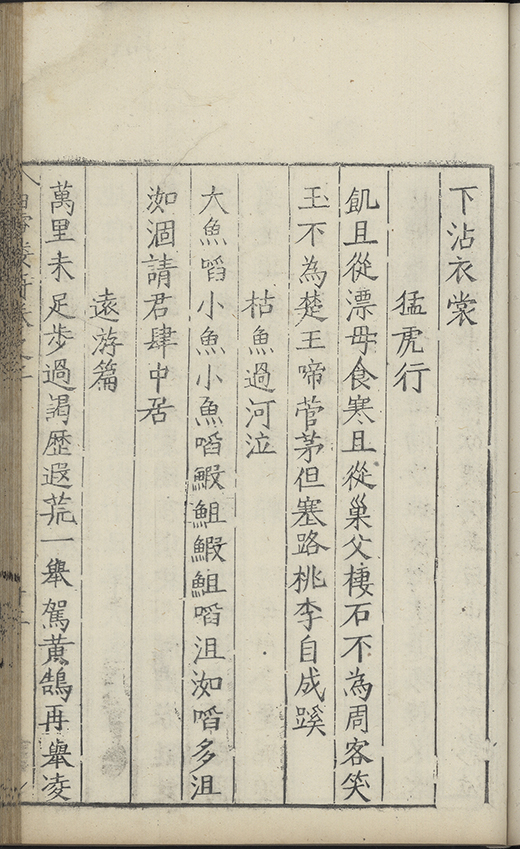 下沾衣裳
猛虎行
飢且從漂母食寒且從巢父棲石不為周客笑
玉不為楚王啼菅茅但塞路桃李自成蹊
枯魚過河泣
大魚啗小魚小魚啗鰕䱉鰕䱉啗沮洳啗多沮
洳涸請君肆中居
遠游篇
萬里未足步過謁歷遐荒一舉駕黃鵠再舉凌